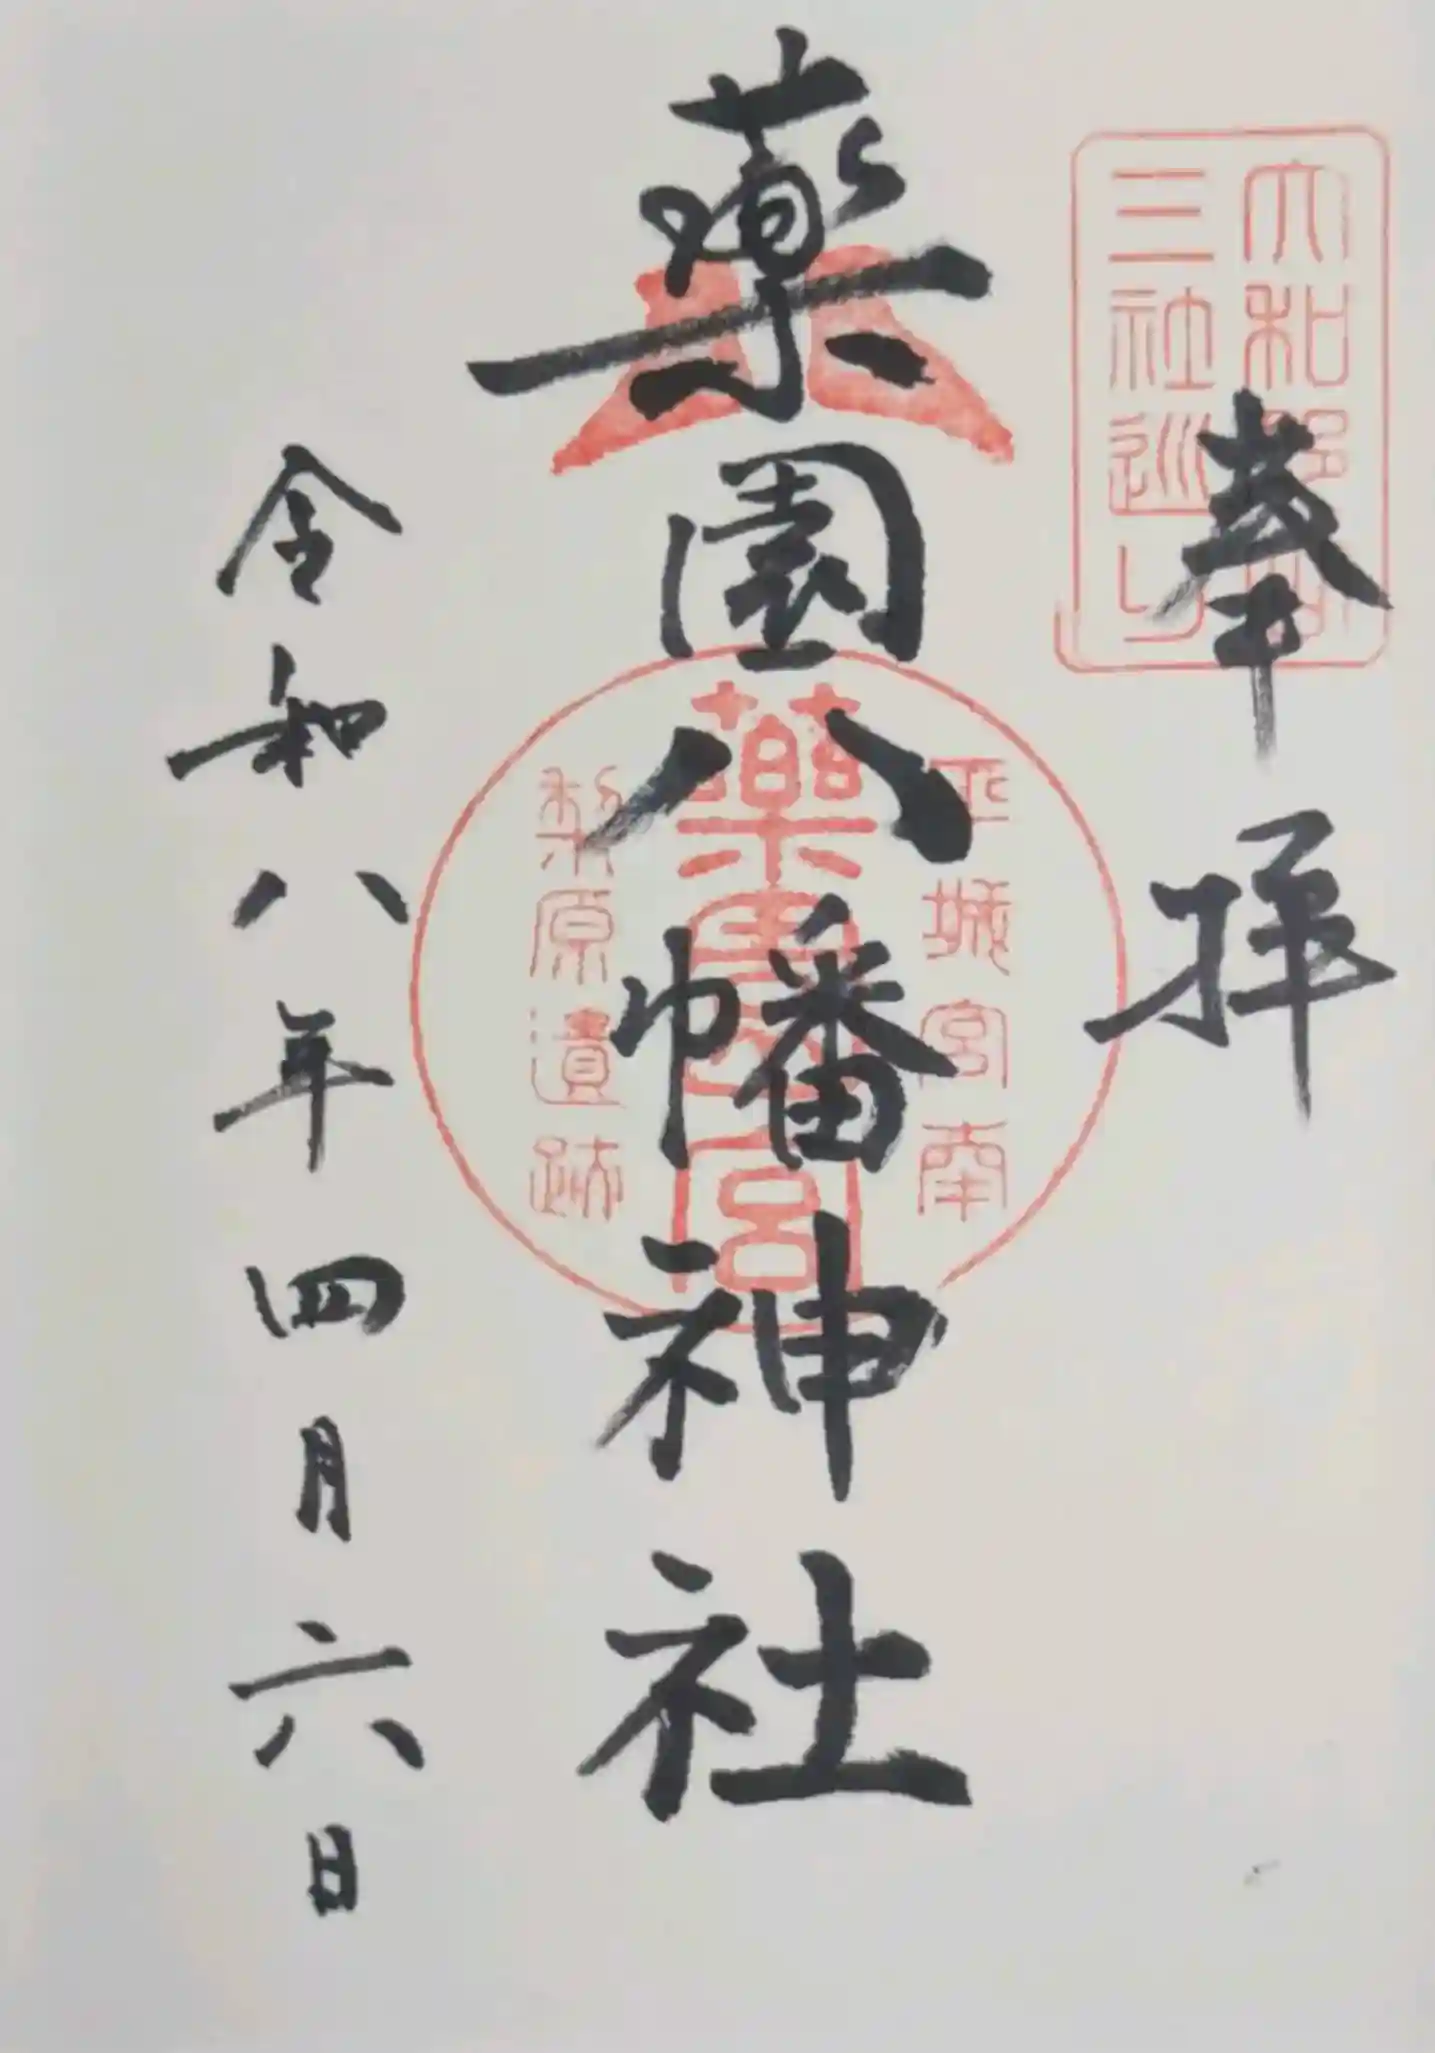 大和郡山
三社巡り
奉拝
薬園八幡神社
平城宮南
薬園宮
梨原遺跡
令和八年四月六日